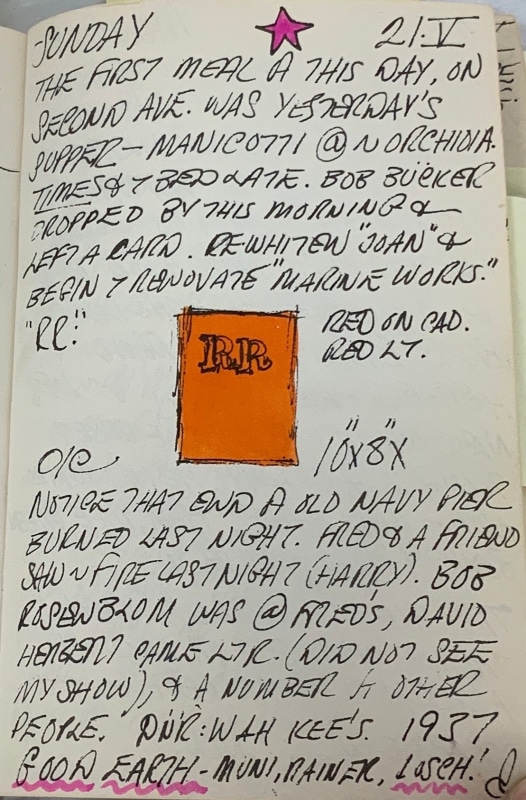 SUNDAY 21·V
THE FIRST MEAL A THIS DAY, ON
SECOND AVE. WAS YESTERDAY'S
SUPPER — MANICOTTI @ NORCHIDIA.
TIMES & T BED LATE. BOB BÜCKER
DROPPED BY THIS MORNING &
LEFT A CARD. REWHITEN "JOAN" &
BEGIN T RENOVATE "MARINE WORKS."
"RR:"
RED ON CAD.
RED LT.
RR
O/C 10"X8"X
NOTICE THAT END A OLD NAVY PIER
BURNED LAST NIGHT. FRED & A FRIEND
SAW ~ FIRE LAST NIGHT (HARRY). BOB
ROSENBLOM WAS @ FRED'S, DAVID
HERBERT CAME LTR. (DID NOT SEE
MY SHOW), & A NUMBER A OTHER
PEOPLE. DNR: WAH KEE'S. 1937
GOOD EARTH — MUNI, RAINER, LOSCH!